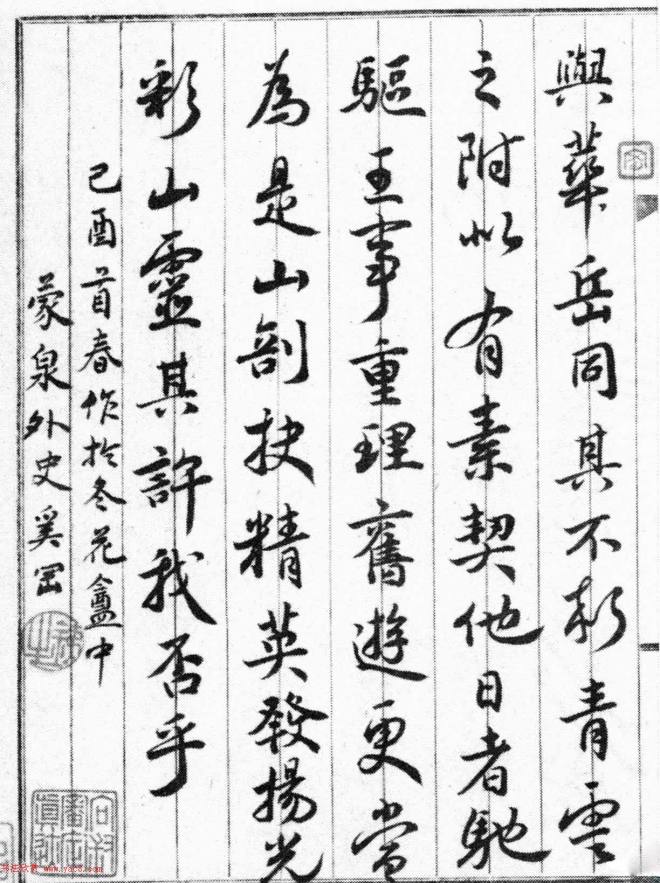 與華岳同其不朽青雲
之附似有素契他日者馳
驅王事重理舊遊更當
為是山剖抉精英發揚光
彩山靈其許我否乎
己酉首春作於冬花盦中
蒙泉外史奚岡
www.yac8.com